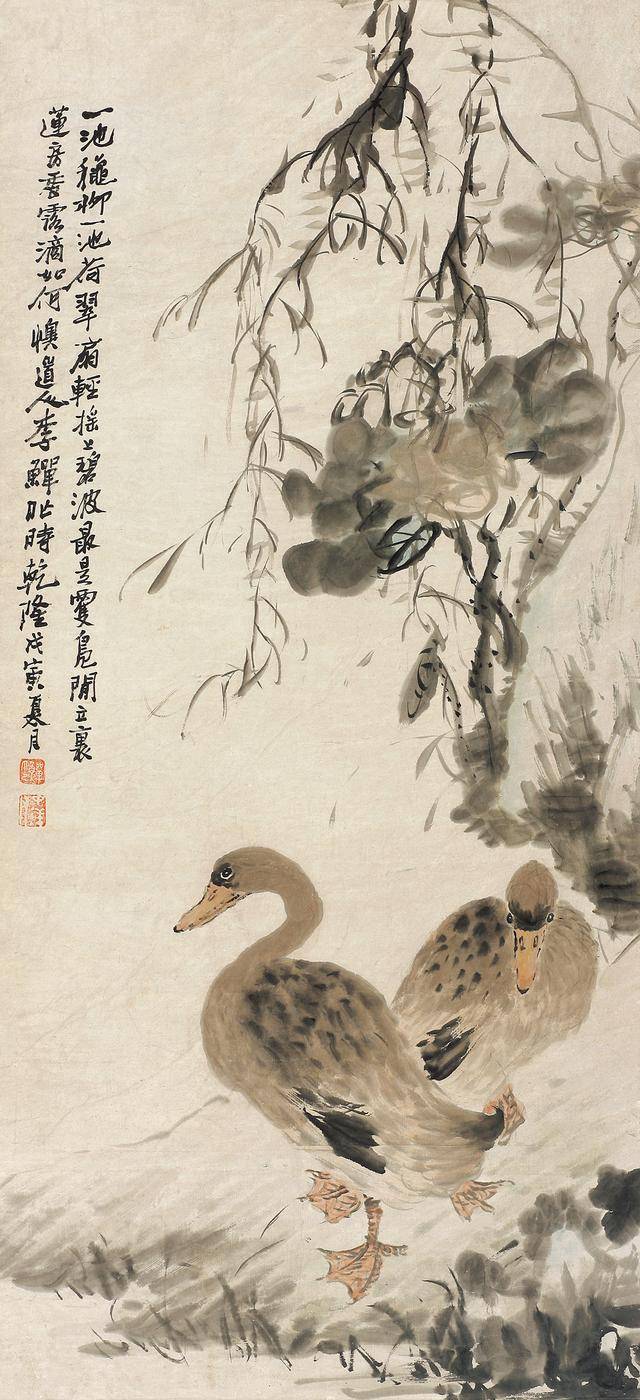 一池穠柳一池荷翠扇輕搖上碧波最是雙鳧閒立裏
蓮房垂露滴如何懊道人李鱓時乾隆戊寅夏月